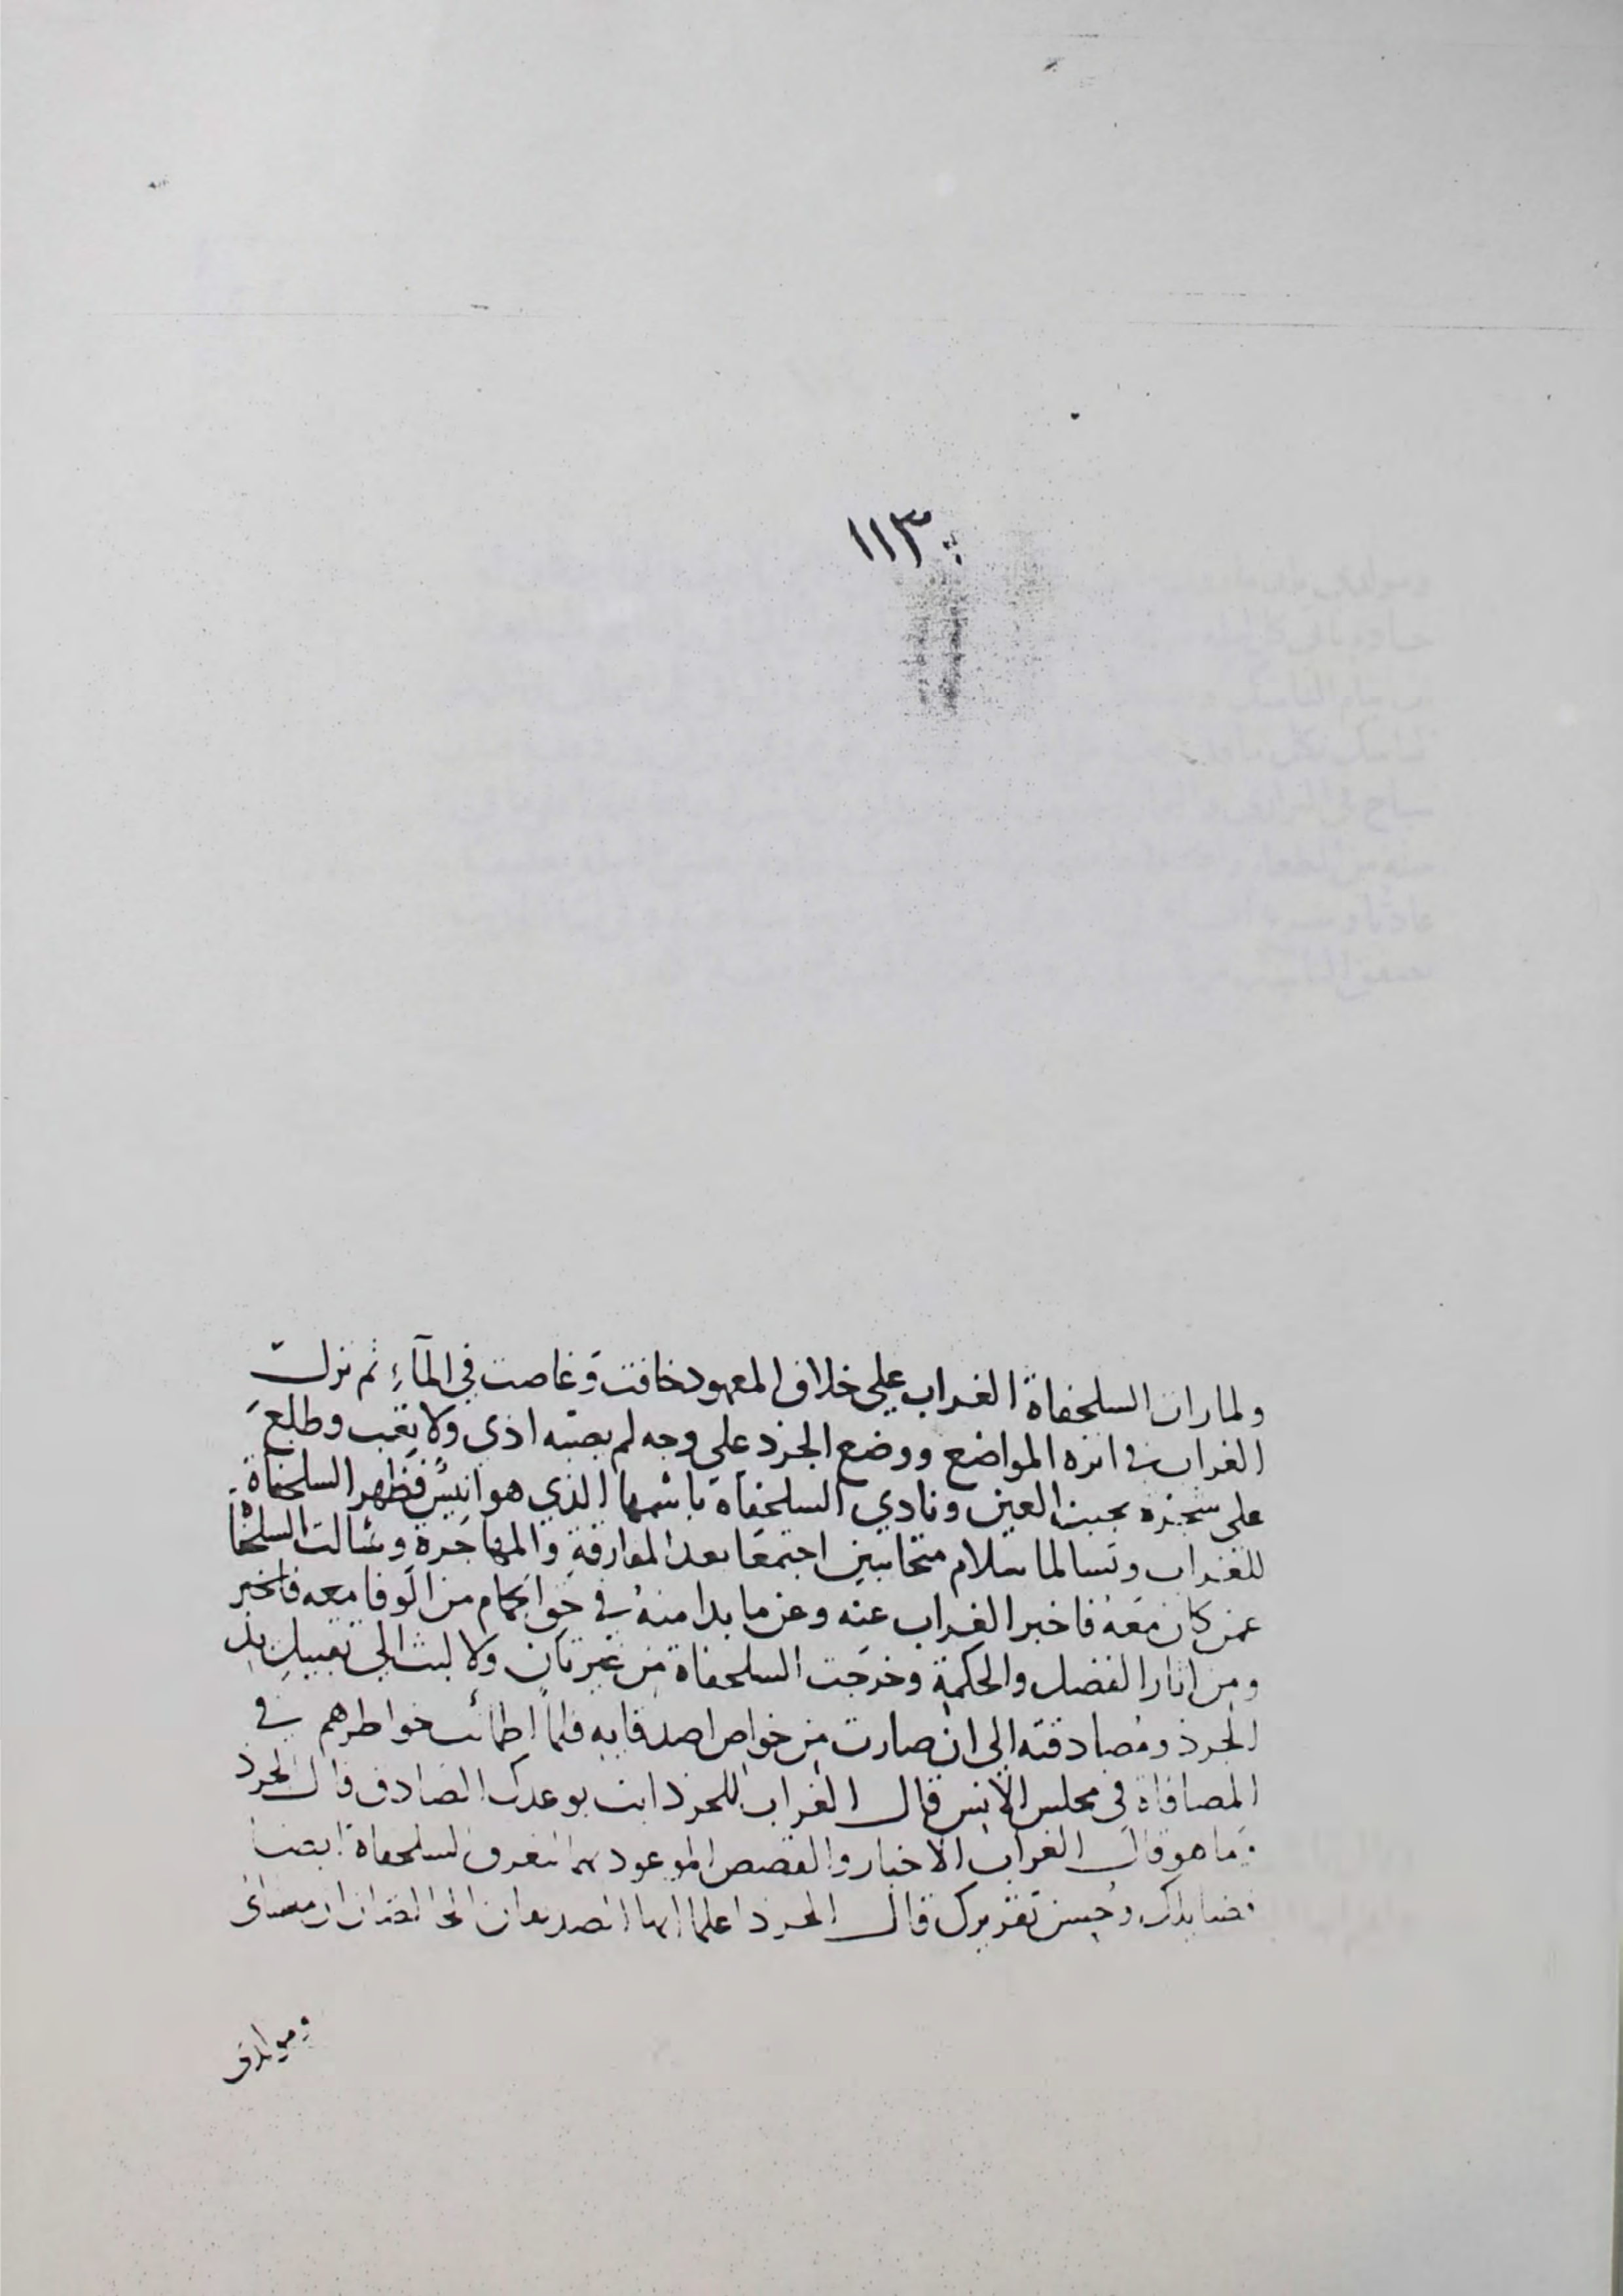 ١١٣
ولما رات السلحفاة الغراب على خلاف المعهود خافت وغاصت في المآءِ ثم نزلت
الغراب في انزه المواضع ووضع الجرذ على وجه لم يصبه اذى ولا تعب وطلع
على شجرة بجنب العين ونادي السلحفاة باسمها الذي هو انيس فظهر السلحفاة
للغراب وتسالما سلام متحابين اجتمعا بعد المفارقة والمهاجرة وسالت السلحفا
عمن كان معه فاخبر الغراب عنه وعن ما بدا منه في حق الحمام من الوفا معه فاخبر
ومن اثار الفضل والحكمة وخرجت السلحفاة من غير تان ولا لبث الى تقبيل يد
الجرذ ومصادقته الى ان صارت من خواص اصدقايه فلما اطمانت خواطرهم في
المصافاة في مجلس الانس قال الغراب للجرذ ايت بوعدك الصادق قال الجرذ
وما هو قال الغراب الاخبار والقصص الموعود بهما لتعرف السلحفاة ايضا
فضايلك وحسن تقريرك قال الجرذ اعلما ايها الصديقان ان
ومولدى